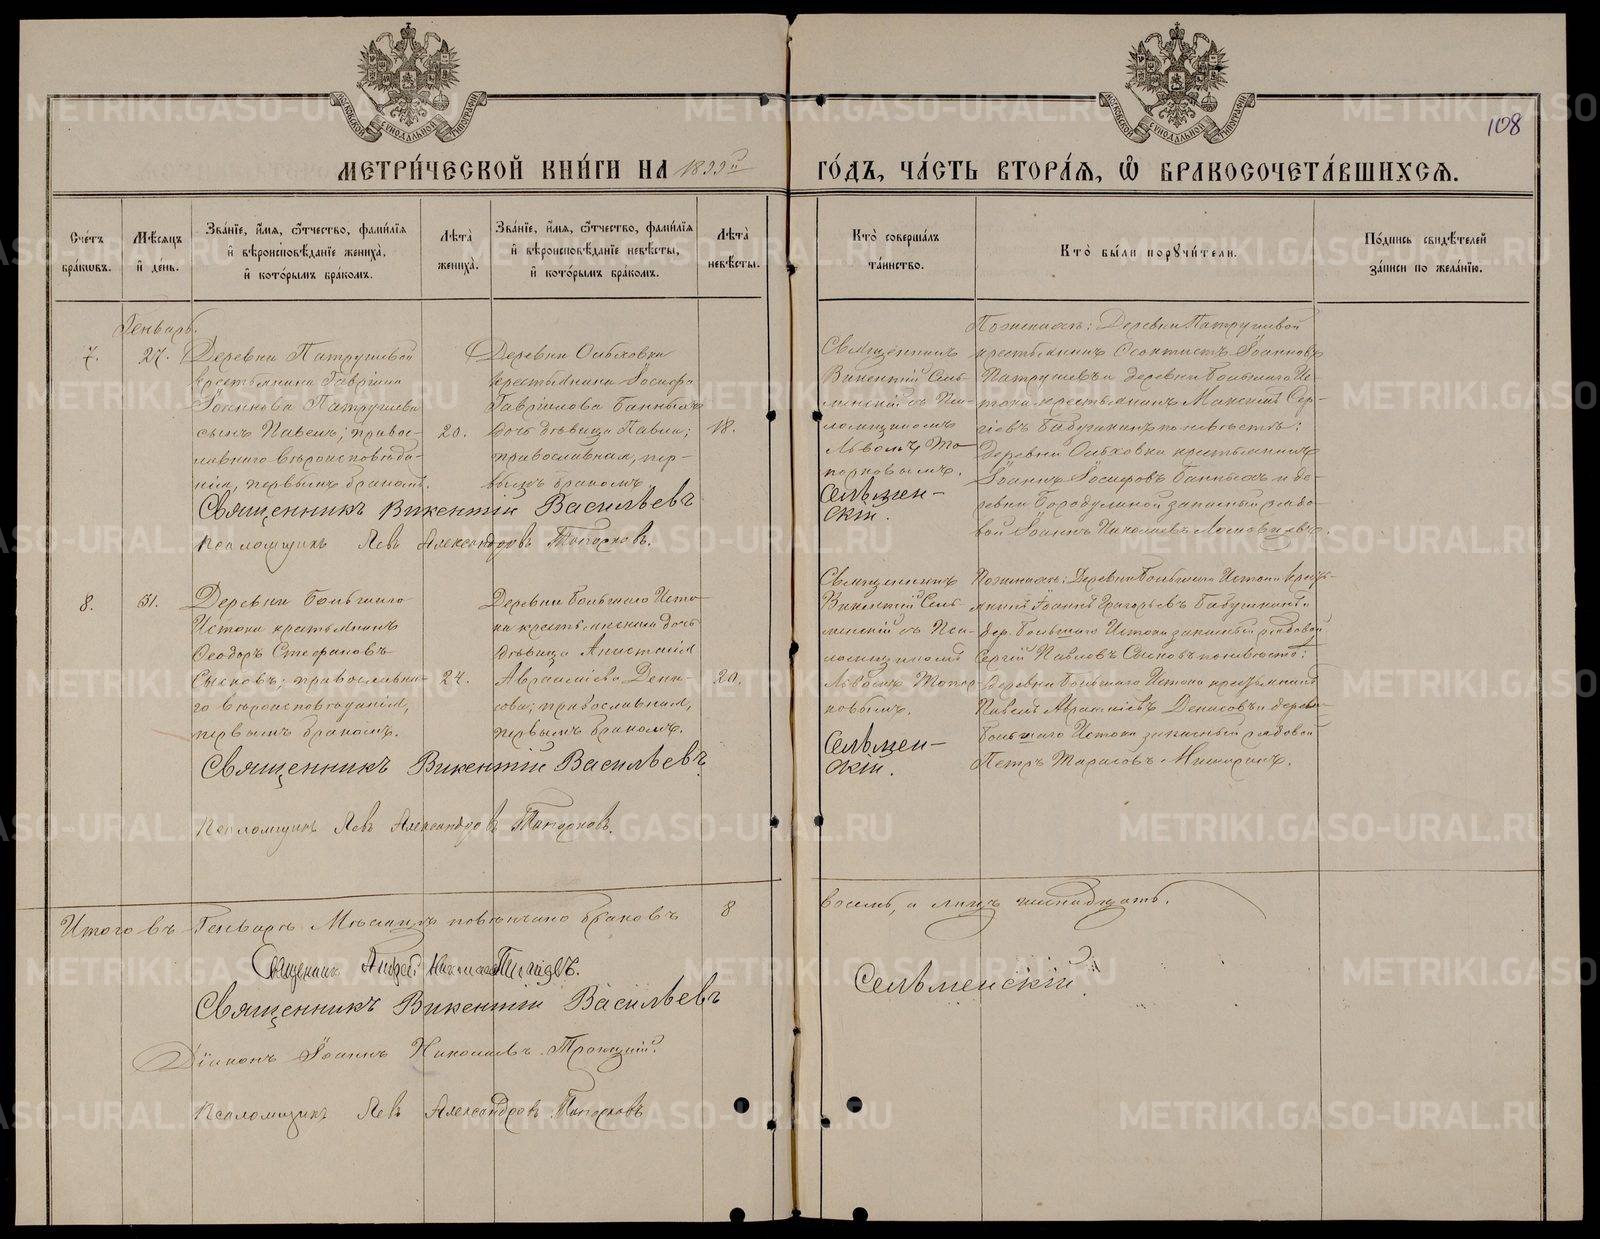 108
МЕТРИ́ЧЕСКОЙ КНИ́ГИ НА 1899й ГО́ДЪ, ЧА́СТЬ ВТОРА́Я, Ѽ БРАКОСОЧЕТА́ВШИХСЯ.
Сче́тъ бра́кωвъ.
Мѣ́сяцъ и҆ де́нь.
Зва́нїе, и҆́мя, ѻ҆́тчество, фами́лїя и҆ вѣроисповѣ́данїе жениха̀, и҆ кото́рымъ бра́комъ.
Лѣ́та жениха̀.
Зва́нїе, и҆́мя, ѻ҆́тчество, фами́лїя и҆ вѣроисповѣ́данїе невѣ́сты, и҆ кото́рымъ бра́комъ.
Лѣ́та невѣ́сты.
Кто̀ соверша́лъ та́инство.
Кто̀ бы́ли порꙋчи́тели.
По́дпись свидѣ́телей за́писи по жела́нїю.
Генварь.
7.
27.
Деревни Патрушевой
крестьянина Гавріила
Іоаннова Патрушева
сынъ Павелъ; правос-
лавнаго вѣроисповѣда-
нія, первымъ бракомъ.
20.
Деревни Ольховки
крестьянина Іосифа
Гавріилова Банныхъ
дочь дѣвица Павла;
православная, пер-
вымъ бракомъ.
18.
Священникъ
Викентій Сель-
менскій съ Пса-
ломщикомъ
Львомъ То-
порковымъ.
Сельмен-
скій.
По женихѣ: Деревни Патрушевой
крестьянинъ Ѳеоктистъ Іоанновъ
Патрушевъ и деревни Большаго Ис-
тока крестьянинъ Максимъ Сер-
гіевъ Бабушкинъ по невѣстѣ:
Деревни Ольховки крестьянинъ
Іоаннъ Іосифовъ Банныхъ и де-
ревни Бородулиной запасный рядо-
вой Іоаннъ Николаевъ
Священникъ Викентій Васильевъ
Псаломщикъ Левъ Александровъ Топорковъ.
8.
31.
Деревни Большаго
Истока крестьянинъ
Ѳеодоръ Стефановъ
Сысковъ; православна-
го вѣроисповѣданія,
первымъ бракомъ.
24.
Деревни Большаго Исто-
ка крестьянская дочь
дѣвица Анастасія
Авраамiева Дени-
сова; православная,
первымъ бракомъ.
20.
Священникъ
Викентій Сель-
менскій съ Пса-
ломщикомъ
Львомъ Топор-
ковымъ.
Сельмен-
скій.
По женихѣ: Деревни Большаго Истока кресть-
янинъ Іоаннъ Григорьевъ Бабушкинъ и
дер. Большаго Истока запасный рядовой
Сергій Павловъ Сысковъ по невѣстѣ:
Деревни Большаго Истока крестьянинъ
Павелъ Авраамiевъ Денисовъ и деревни
Большаго Истока запасный рядовой
Петръ Тарасовъ
Священникъ Викентій Васильевъ
Псаломщикъ Левъ Александровъ Топорковъ.
Итого въ Генварѣ Мѣсяцѣ повѣнчано браковъ 8 восемь, а лицъ шестнадцать.
Священник Андрей
Священникъ Викентій Васильевъ Сельменскій.
Діаконъ Іоаннъ Николаевъ Троицкій.
Псаломщикъ Левъ Александровъ Топорковъ